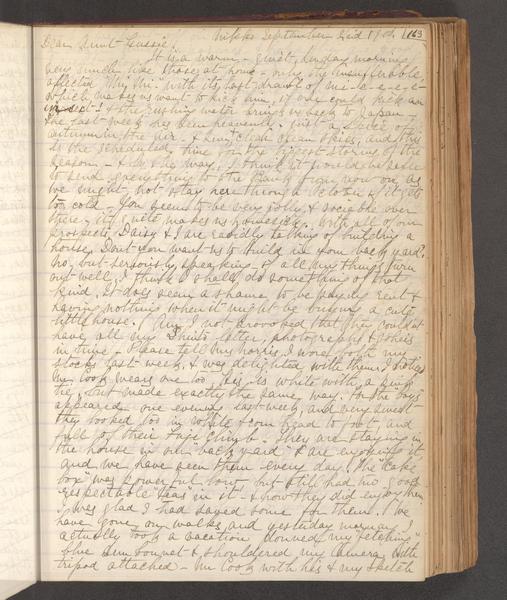 163
Dear Aunt Gussie, Nikko September 1904
It is a warm, quiet, Sunday morning
very much like those at home - only
affected with its last drawl of me-e-e-e-
which makes us want to kick him, if one could kick an
insect - & the rushing water brings us back to Japan -
The last week has been heavenly - just a
autumn in the air & clear skies, and this
is the scheduled time for the biggest storms of the
season - By the way, I think it would be safer
to send everything to the Bank from now on as
we might not stay here through October if it gets
too cold - You seem to be very jolly & sociable over
there - it quite makes us homesick. With all of our
prospects, Daisy & I are rapidly talking of building a
house. Dont you want us to build in your back yard?
No, but seriously speaking - if all my things turn
out well, I think I shall do something of that
kind. It does seem a shame to be paying rent &
having nothing when it might be buying a cute
little house. Am I not provoked that they couldnt
have all my prints, letter, photographs &
in time - Please tell Mrs Morris, I wore both my
stocks last week, & was delighted with them.
My cook wears one too, his is white with a
tie, but made exactly the same way. The boys
appeared one evening last week, and very sweet
they looked too in white & corn head to foot, and
full of their Fuji climb - They are staying in
the house in our back yard & are enjoying it
and we have seen them every day. The "cake
box" was powerful low, but still had two good
respectable "teas" in it - I know they did enjoy them
I was glad I had saved some for them. We
have gone on walks and yesterday morning I
actually took a vacation donned my "fetching"
blue sunbonnet & shouldered my camera with
tripod attached - the cook with his & my sketch